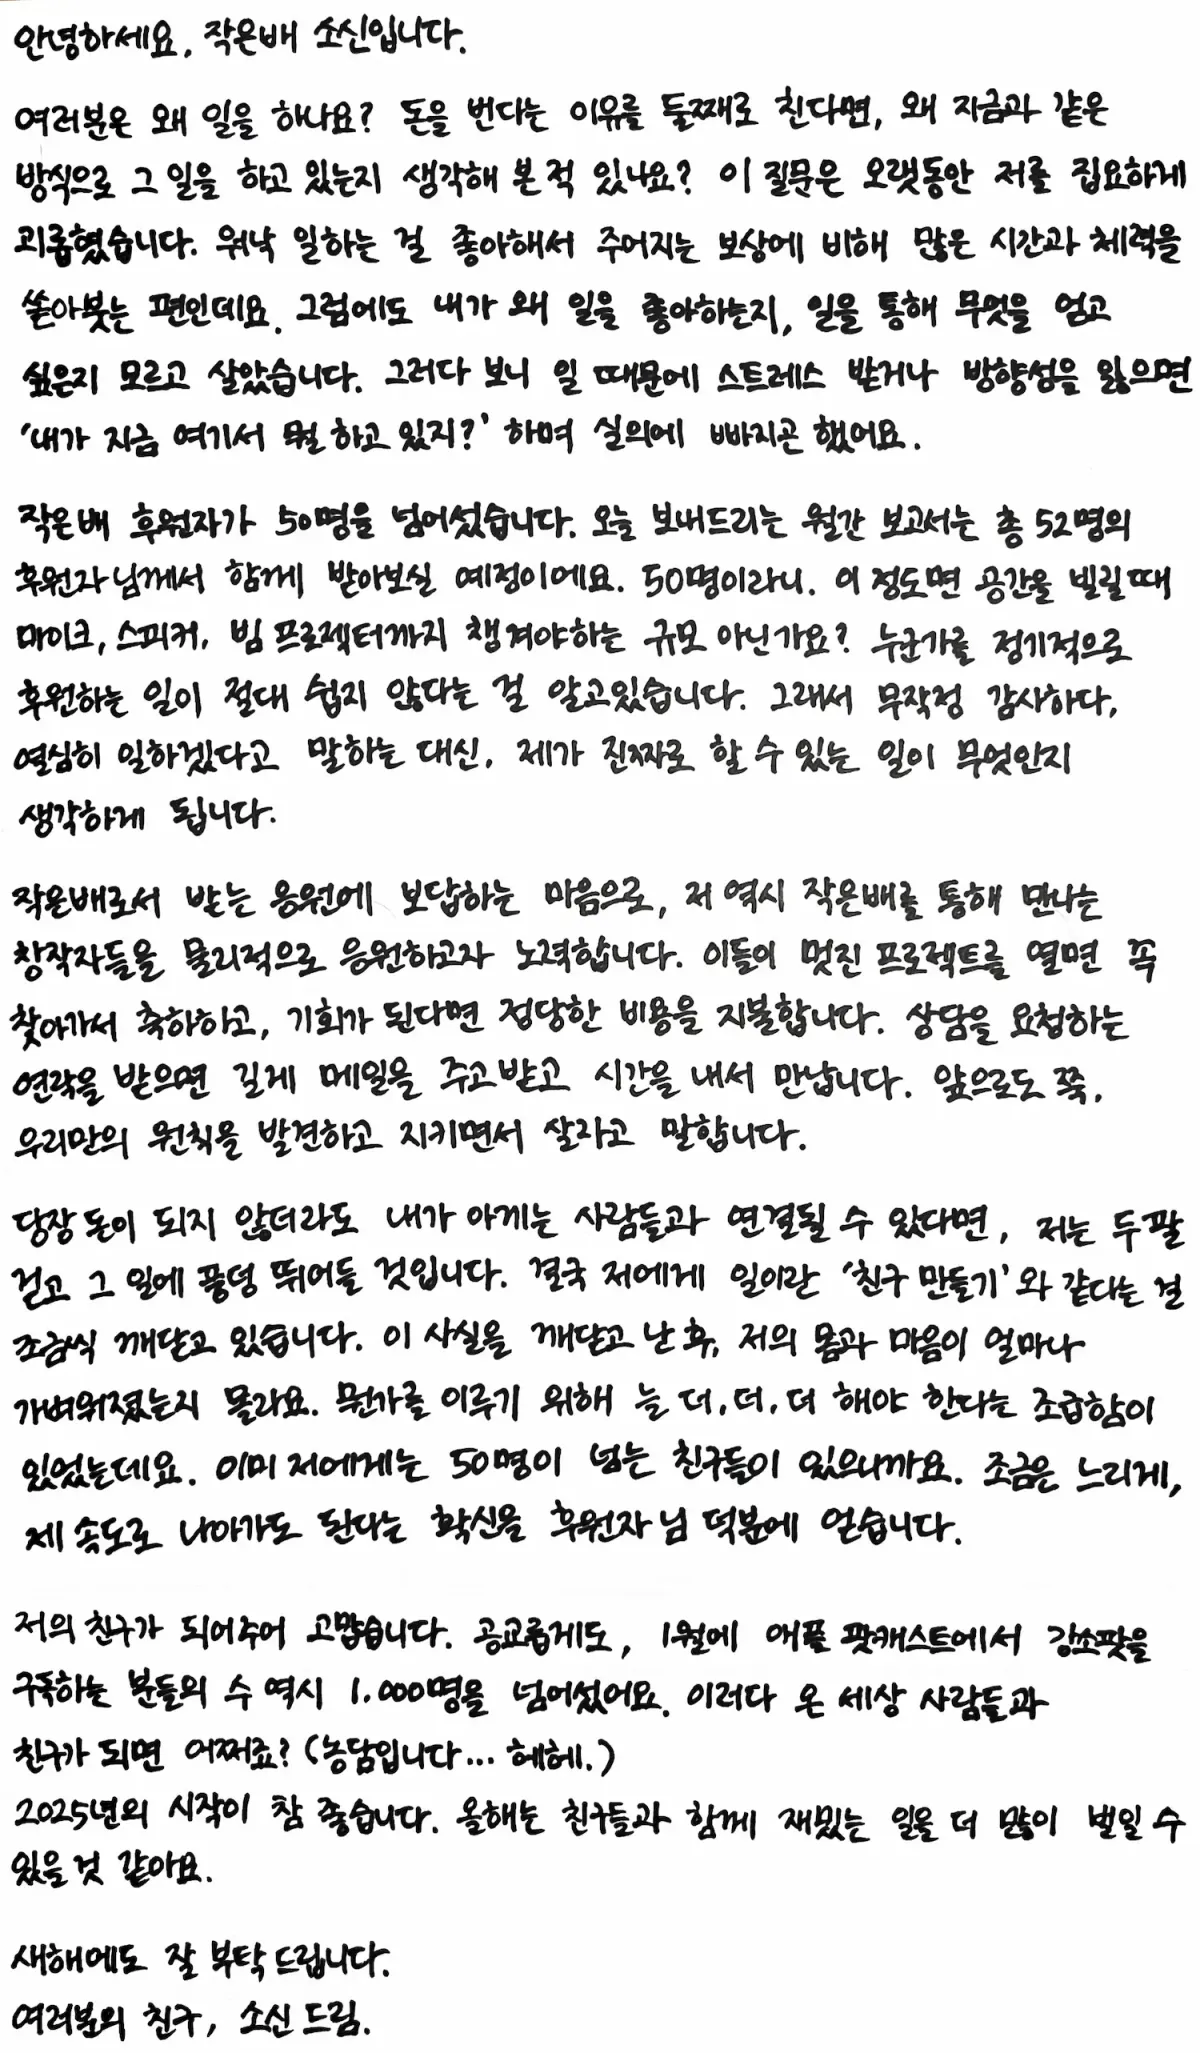 안녕하세요, 작은배 소신입니다.
여러분은 왜 일을 하나요? 돈을 번다는 이유를 둘째로 친다면, 왜 지금과 같은
방식으로 그 일을 하고 있는지 생각해 본 적 있나요? 이 질문은 오랫동안 저를 집요하게
괴롭혔습니다. 워낙 일하는 걸 좋아해서 주어지는 보상에 비해 많은 시간과 체력을
쏟아붓는 편인데요. 그럼에도 내가 왜 일을 좋아하는지, 일을 통해 무엇을 얻고
싶은지 모르고 살았습니다. 그러다 보니 일 때문에 스트레스 받거나 방향성을 잃으면
'내가 지금 여기서 뭘 하고 있지?' 하며 실의에 빠지곤 했어요.
작은배 후원자가 50명을 넘어섰습니다. 오늘 보내드리는 월간 보고서는 총 52명의
후원자님께서 함께 받아보실 예정이에요. 50명이라니. 이 정도면 공간을 빌릴 때
마이크, 스피커, 빔 프로젝터까지 챙겨야하는 규모 아닌가요? 누군가를 정기적으로
후원하는 일이 절대 쉽지 않다는 걸 알고있습니다. 그래서 무작정 감사하다,
열심히 일하겠다고 말하는 대신, 제가 진짜로 할 수 있는 일이 무엇인지
생각하게 됩니다.
작은배로서 받는 응원에 보답하는 마음으로, 저 역시 작은배를 통해 만나는
창작자들을 물리적으로 응원하고자 노력합니다. 이들이 멋진 프로젝트를 열면 꼭
찾아가서 축하하고, 기회가 된다면 정당한 비용을 지불합니다. 상담을 요청하는
연락을 받으면 길게 메일을 주고받고 시간을 내서 만납니다. 앞으로도 쭉,
우리만의 원칙을 발견하고 지키면서 살자고 말합니다.
당장 돈이 되지 않더라도 내가 아끼는 사람들과 연결될 수 있다면, 저는 두 팔
걷고 그 일에 풍덩 뛰어들 것입니다. 결국 저에게 일이란 '친구 만들기'와 같다는 걸
조금씩 깨닫고 있습니다. 이 사실을 깨닫고 난 후, 저의 몸과 마음이 얼마나
가벼워졌는지 몰라요. 뭔가를 이루기 위해 늘 더, 더, 더 해야 한다는 조급함이
있었는데요. 이미 저에게는 50명이 넘는 친구들이 있으니까요. 조금은 느리게,
제 속도로 나아가도 된다는 확신을 후원자님 덕분에 얻습니다.
저의 친구가 되어주어 고맙습니다. 공교롭게도, 1월에 애플 팟캐스트에서 강소팟을
구독하는 분들의 수 역시 1,000명을 넘어섰어요. 이러다 온 세상 사람들과
친구가 되면 어쩌죠? (농담입니다... 헤헤.)
2025년의 시작이 참 좋습니다. 올해는 친구들과 함께 재밌는 일을 더 많이 벌일 수
있을 것 같아요.
새해에도 잘 부탁드립니다.
여러분의 친구, 소신 드림.